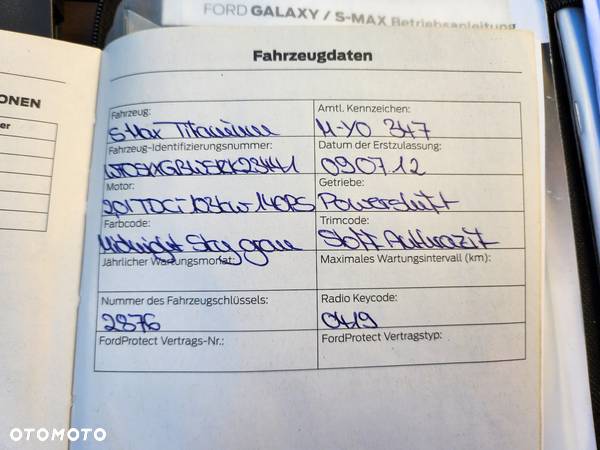 FORD GALAXY / S-MAX Betriebsanleitung
Fahrzeugdaten
ONEN
er
Fahrzeug: Amtl. Kennzeichen:
S-Max Titanium M-YO 347
Fahrzeug-Identifizierungsnummer: Datum der Erstzulassung:
090712
Motor: Getriebe:
2,0l TDCi 103kw 140PS Powershift
Farbcode: Trimcode:
Midnight Sky grau Stoff Anthrazit
Jährlicher Wartungsmonat: Maximales Wartungsintervall (km):
Nummer des Fahrzeugschlüssels: Radio Keycode:
2876 0419
FordProtect Vertrags-Nr.: FordProtect Vertragstyp:
OTOMOTO